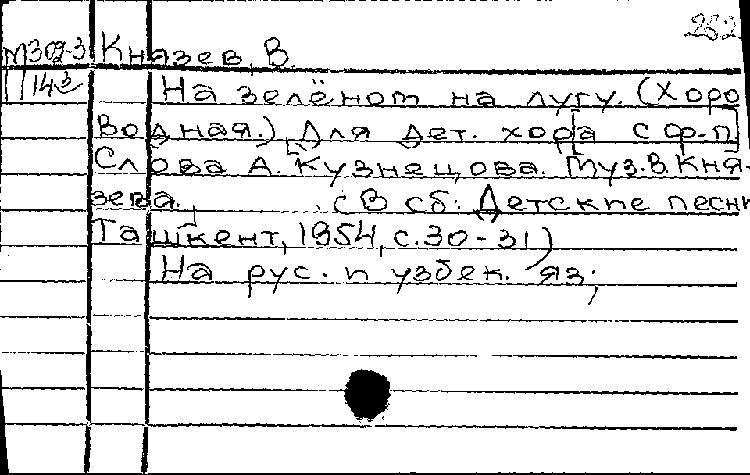 252
М309-3 Князев, В.
1143 На зелёном на лугу. (Хоро
водная.) Для дет. хора [с ф-п]
Слова А. Кузнецова. Муз. В. Кня-
зева. (В сб. Детские песни
Ташкент, 1954, с. 30-31)
На рус. и узбек. яз.